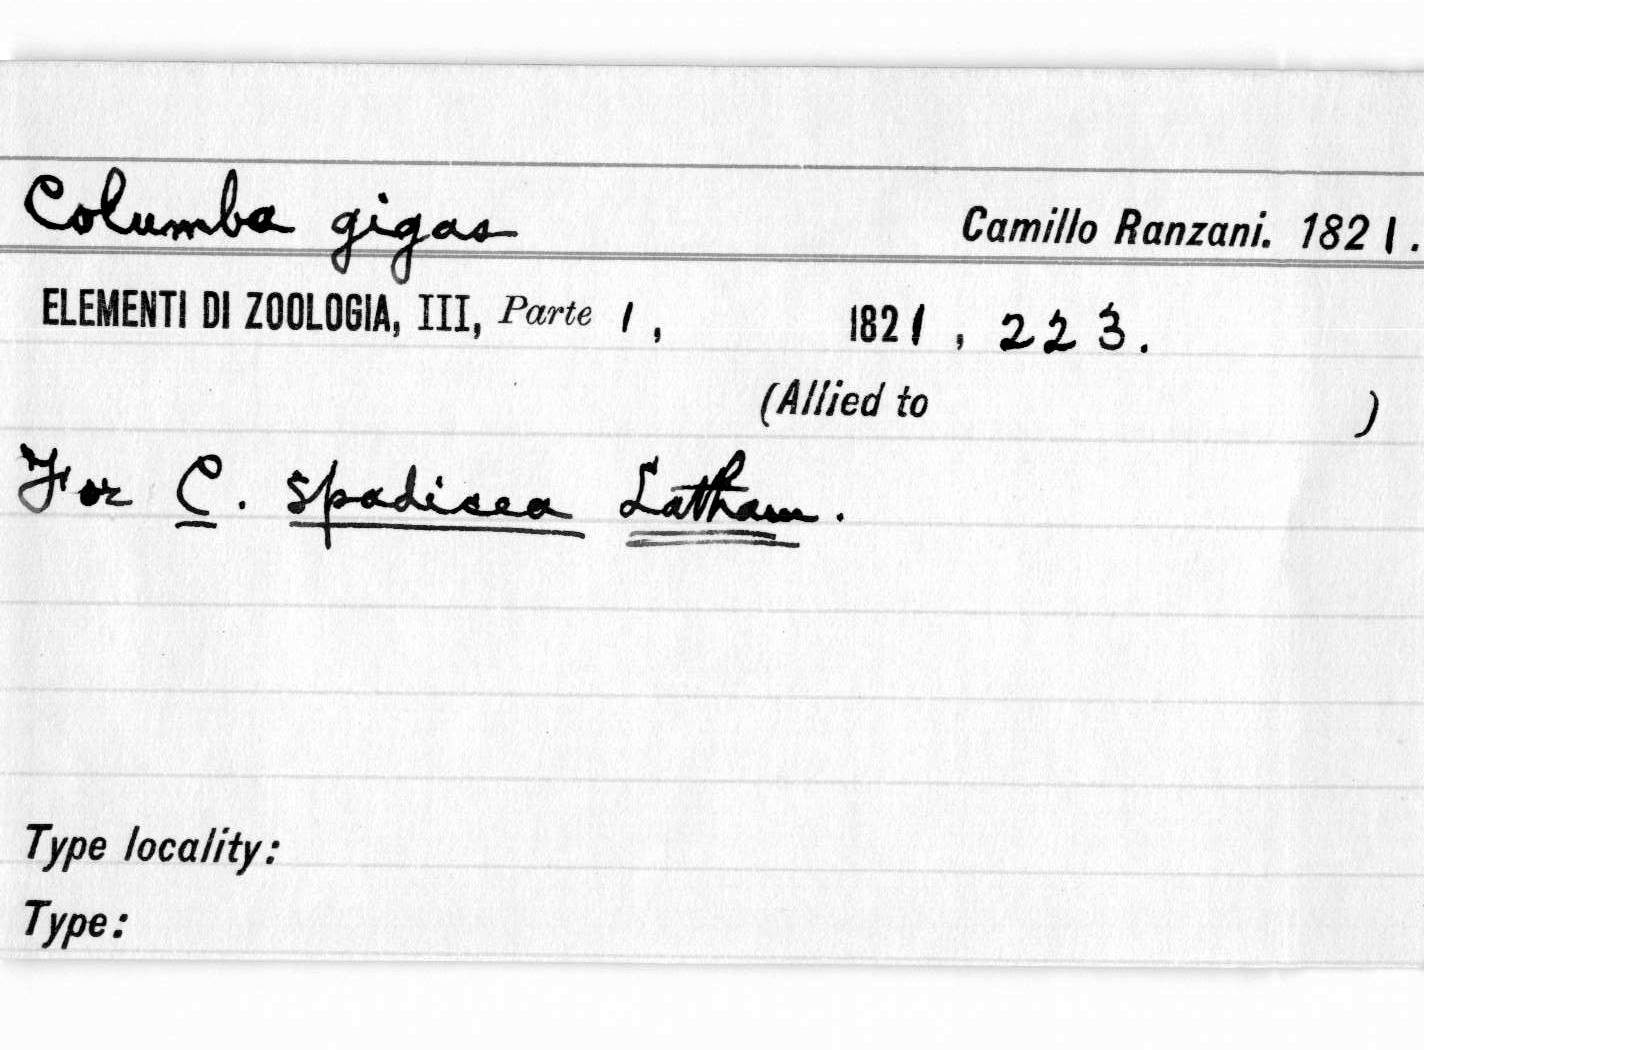 Columba gigas Camillo Ranzani. 1821.
ELEMENTI DI ZOOLOGIA, III, Parte 1, 1821, 223.
(Allied to )
For C. spadicea Latham.
Type locality:
Type: